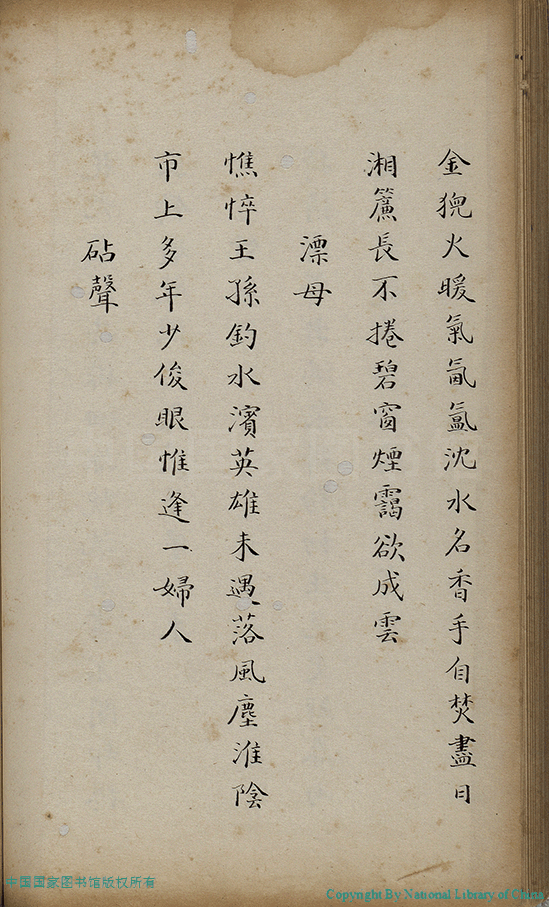 金猊火暖氣氤氳沈水名香手自焚盡日
湘簾長不捲碧窗煙靄欲成雲
漂母
憔悴王孫釣水濱英雄未遇落風塵淮陰
市上多年少俊眼惟逢一婦人
砧聲
中国国家图书馆版权所有
Copyright By National Library of China